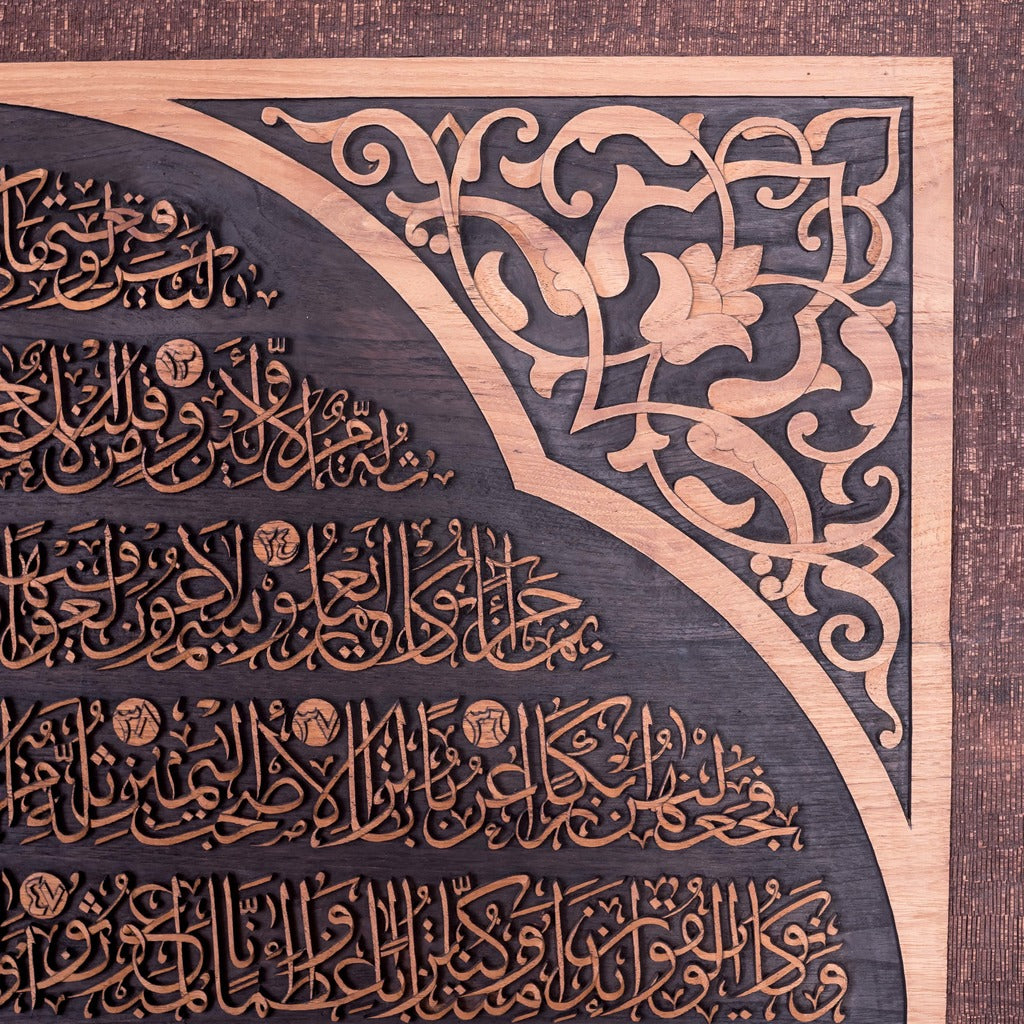 ليس لوقعتها
ثلة من الأولين ١٣ وقليل من
جزاء بما كانوا يعملون ٢٤ لا يسمعون فيها لغوا
فجعلنهن أبكارا ٣٦ عربا أترابا ٣٧ لأصحب اليمين ٣٨ ثلة من
وكانوا يقولون أئذا متنا وكنا ترابا وعظما أءنا لمبعوثون ٤٧